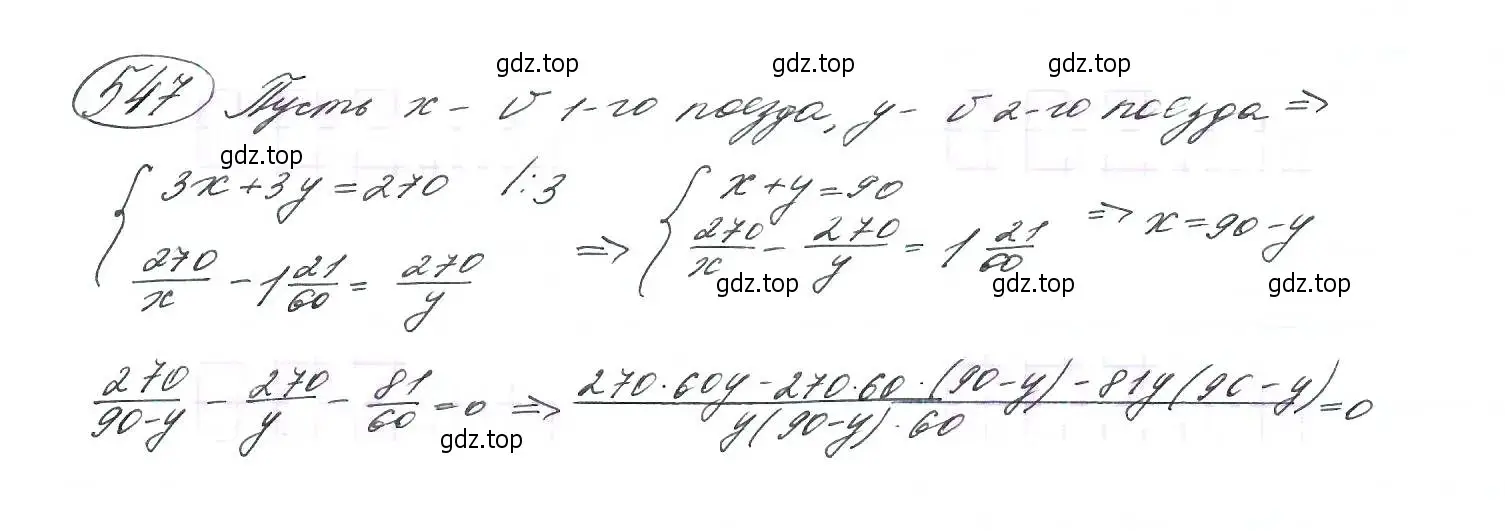 gdz.top gdz.top gdz.top
547 Пусть x - v 1-го поезда, y - v 2-го поезда =>
gdz.top
{ 3x + 3y = 270 |:3 { x + y = 90
270/x - 1 21/60 = 270/y => 270/x - 270/y = 1 21/60 => x = 90 - y
gdz.top gdz.top gdz.top gdz.top
270/(90-y) - 270/y - 81/60 = 0 => (270·60y - 270·60·(90-y) - 81y(90-y))/(y(90-y)·60) = 0
gdz.top